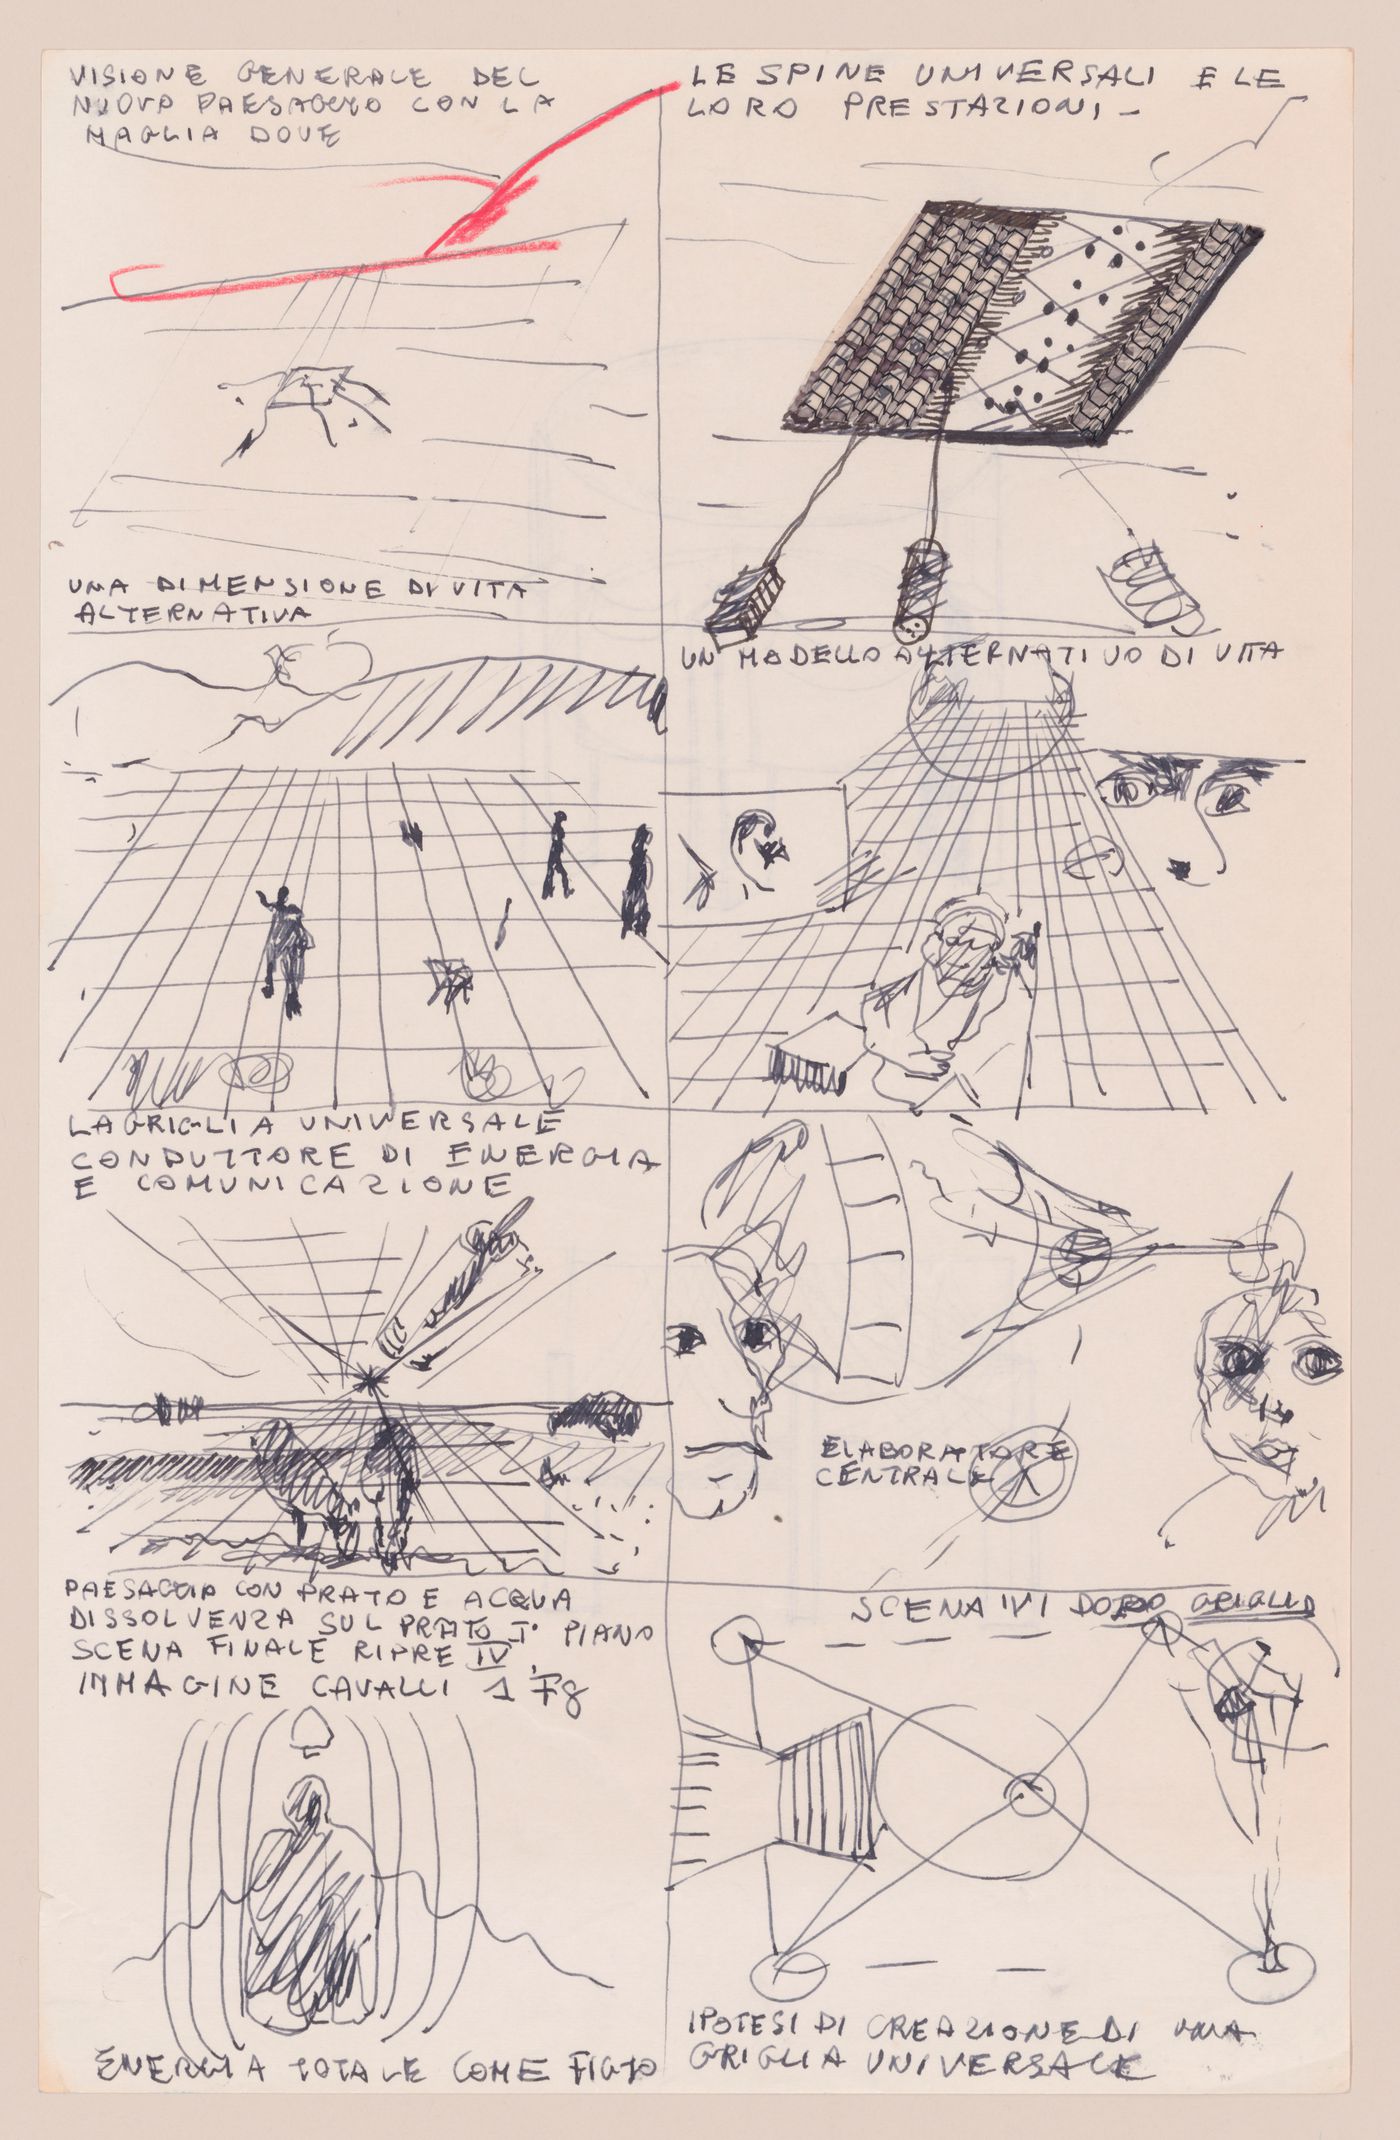 VISIONE GENERALE DEL
NUOVO PAESAGGIO CON LA
MAGLIA DOVE
LE SPINE UNIVERSALI E LE
LORO PRESTAZIONI -
UNA DIMENSIONE DI VITA
ALTERNATIVA
UN MODELLO ALTERNATIVO DI VITA
LA GRIGLIA UNIVERSALE
CONDUTTORE DI ENERGIA
E COMUNICAZIONE
ELABORATORE
CENTRALE
PAESAGGIO CON PRATO E ACQUA
DISSOLVENZA SUL PRATO I° PIANO
SCENA FINALE RIPRE IV
IMMAGINE CAVALLI 1 Fg
SCENA IVI DOPO GRIGLIA
ENERGIA TOTALE COME
IPOTESI DI CREAZIONE DI UNA
GRIGLIA UNIVERSALE